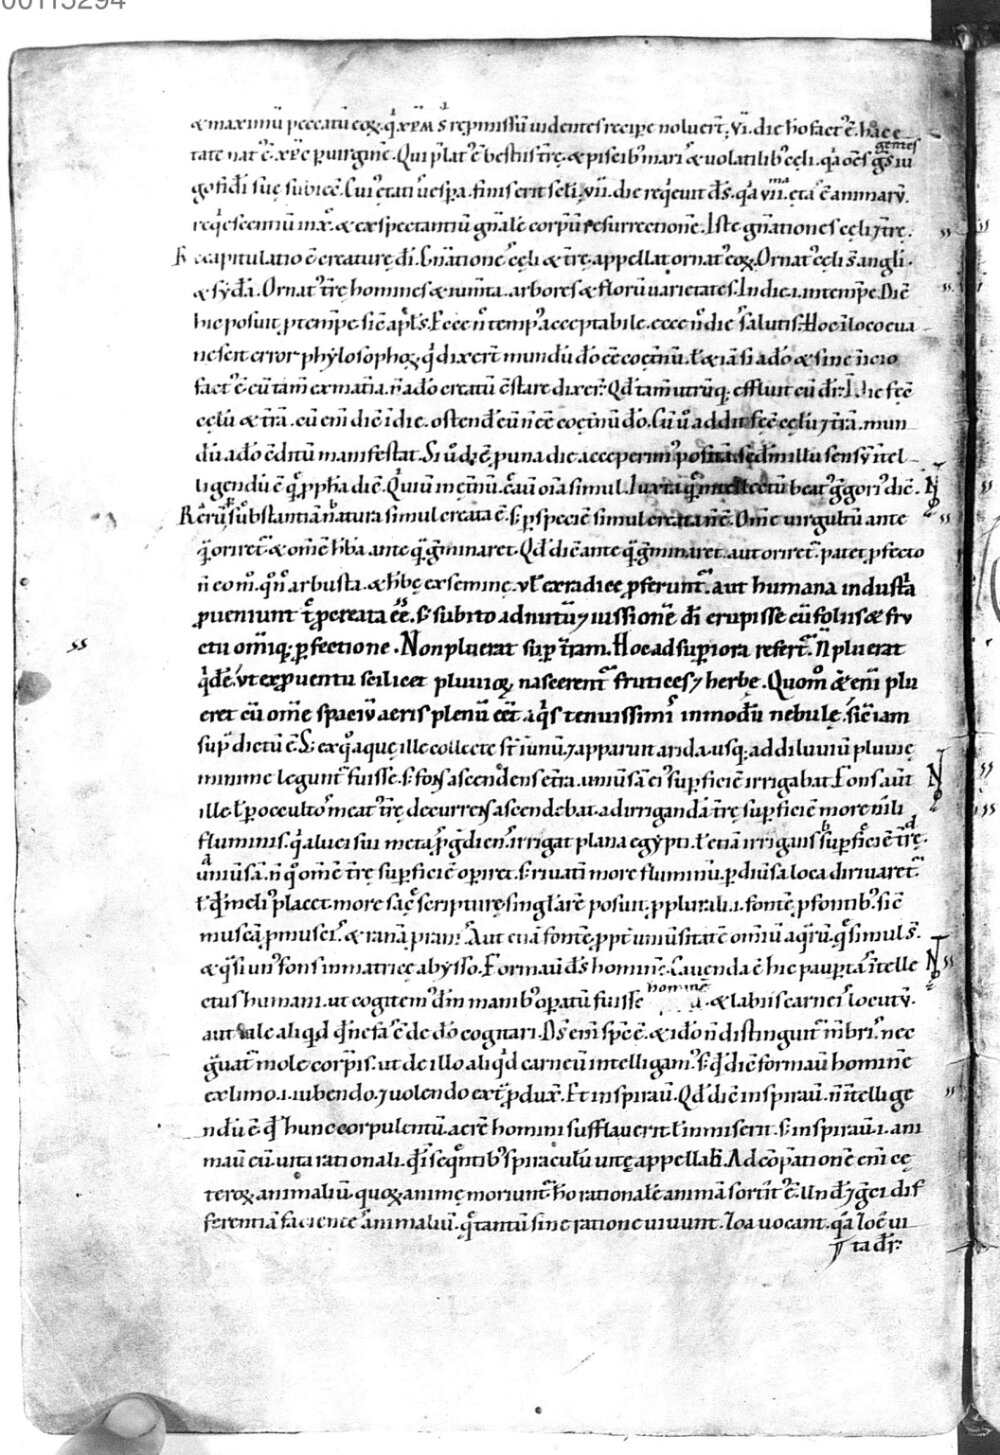 00115294
& maximū peccatū eoꝝ. q̇ xp̄m s̄ repmissū uidentes recipe noluert̄. vi. die hō fact᷒ ē. hac e
tate nat᷒ ē. xp̄c p uirginē. Qui p̄lat᷒ ē bestiis tr̄ę. & piscib᷒ mari᷒ & uolatilib᷒ cęli. q̇a om̄s gentes iu
go fidi suę subiec̄. Cui᷒ ętati uespa. finis erit sc̄li. vii. die req̇euit ds̄. q̇a vii.ma ęta᷒ ē animarū.
req̇escentiū in x̄. & exspectantiū gn̄alē corpū resurrectionē. Iste gn̄ationes cęli ⁊ tr̄ę.
Recapitulatio ē creaturę dī. Gn̄ationē cęli & tr̄ę. appellat ornat᷒ eoꝝ. Ornat᷒ cęli s̄ angli.
& syd̄a. Ornat᷒ tr̄ę homines & iumta. arbores & florū uarietates. In die .i. in tempe. Diē
hic posuit p tempe sic apl̄s. Ecce n̄ temp᷒ acceptabile. ecce n̄ dies salutis. Hoc ī loco eua
nescit error phylosophoꝝ. qd̄ dixert̄ mundū dō cē coęt̄nū. ł & iā si a dō & sine īicio
fact᷒ ē cū tam̄ ex mat̄ia. n̄ a dō creatū ē stare dixer̄. Qd̄ tam̄ utrūq; effluit cū dr̄. In die fec̄
cęlū & tr̄ā. cū eni diē ī die. ostend̄ eū n̄ cē coęt̄nū dō. Cū ū addit fec̄ cęlū ⁊ tr̄ā. mun
dū a dō cditū manifestat. Si ū dz ē, p una die acceperim᷒ posita. sed in illu sensū itel
ligendū ē q̄ ppħa diē. Qui uiu in ęt̄nū. c̄auī oīa simul. Iuxta q̄ intellectū beat᷒ ḡgori᷒ diē.
Rerū substantia n̄ natura simul creata ē. s; p speciē simul creata n̄ ē. Om̄e uirgultū ante
q̄ oriret̄ & om̄ē ħba ante q̄ ḡminaret. Qd̄ diē ante q̄ ḡminaret. aut oriret̄. patet pfecto
n̄ eo m̄. q̊ n̄ arbusta. & ħbę ex seminę. vł ex radice pferunt̄. aut humana industa
pueniunt t̄ pcreata ēē. s; subito ad nutū ⁊ iussionē dī erupisse cū foliis & fru
ctu om̄iq; pfectione. Non pluerat sup tr̄am. Hoc ad supiora refert̄. N̄ pluerat
q̇de. ut ex puentu scilicet pluuioꝝ nascerent̄ frutices ⁊ herbę. Quom̊ & eni plu
eret cū om̄e spaciū aeris plenū eēt aq̇s tenuissimis in modū nebule. sic iam
sup dictū ē. S; ex q̊ aque ille collecte st̄ ī unū. ⁊ apparuit arida. usq; ad diluuiū pluuię
minime legunt̄ fuisse. s; fons ascendens e tr̄a. uniūsā ei᷒ supficiē irrigabat. Fons aut̄
ille ł p occulto᷒ meat᷒ tr̄ę decurrens ascendebat. ad irriganda tr̄ę supficiē more nili
fluminis. q̇ alucı sui meta p̄gdien᷒. irrigat plana egypti. ł etiā irrigans supficiē tr̄ę.
uniūsā. n̄ q̊ om̄ē tr̄ę supficiē opiret. s; riuatī more fluminū. p diūsa loca diriuaret̄.
ł qd̄ meli᷒ placet. more sac̄ę scripturę singlarē posuit. p plurali. i. fontē p fontib᷒. sic
muscā p muscis. & ranā p ranis. Aut etiā fontē. ppt̄ uniūsitatē om̄iū aq̇rū. q̄ simul s̄.
& q̊si un᷒ fons in matrice abysso. Formauī ds̄ hominē. Cauenda ē hic paupta᷒ itelle
ctus humani. ut cogitem᷒ dm̄ manib᷒ opatū fuisse hominē. & labiis carneis locutū.
aut tale aliqd̄ qd̄ nefas ē de dō cogitari. Ds̄ eni sp̄c ē. & idō n̄ distinguit̄ m̄bris. nec
ḡuat̄ mole corpis. ut de illo aliqd̄ carneū intelligam᷒. s; q̇ diē formauī hominē
ex limo. i. iubendo. ⁊ uolendo ext̄ pdux̄. Et inspirauī. Qd̄ diē inspirauī. n̄ itellige
ndū ē qd̄ hunc corpulentū. aerē homini sufflauerit ł inmiserit. s; inspirauī. i. ani
mauī eū uita rationali. q̄ ī seq̄ntib᷒ spiraculū uitę appellab̄. Ad cōpationē eni cę
teroꝝ animaliū. quoꝝ animę moriunt̄. hō rationalē animā sortit᷒ ē. Und̄ ⁊ gęi dif
ferentiā faciente᷒ animaliū. q̇ tantū sine ratione uiuunt. zoa uocant. q̇a zoē ui
ta dr̄.